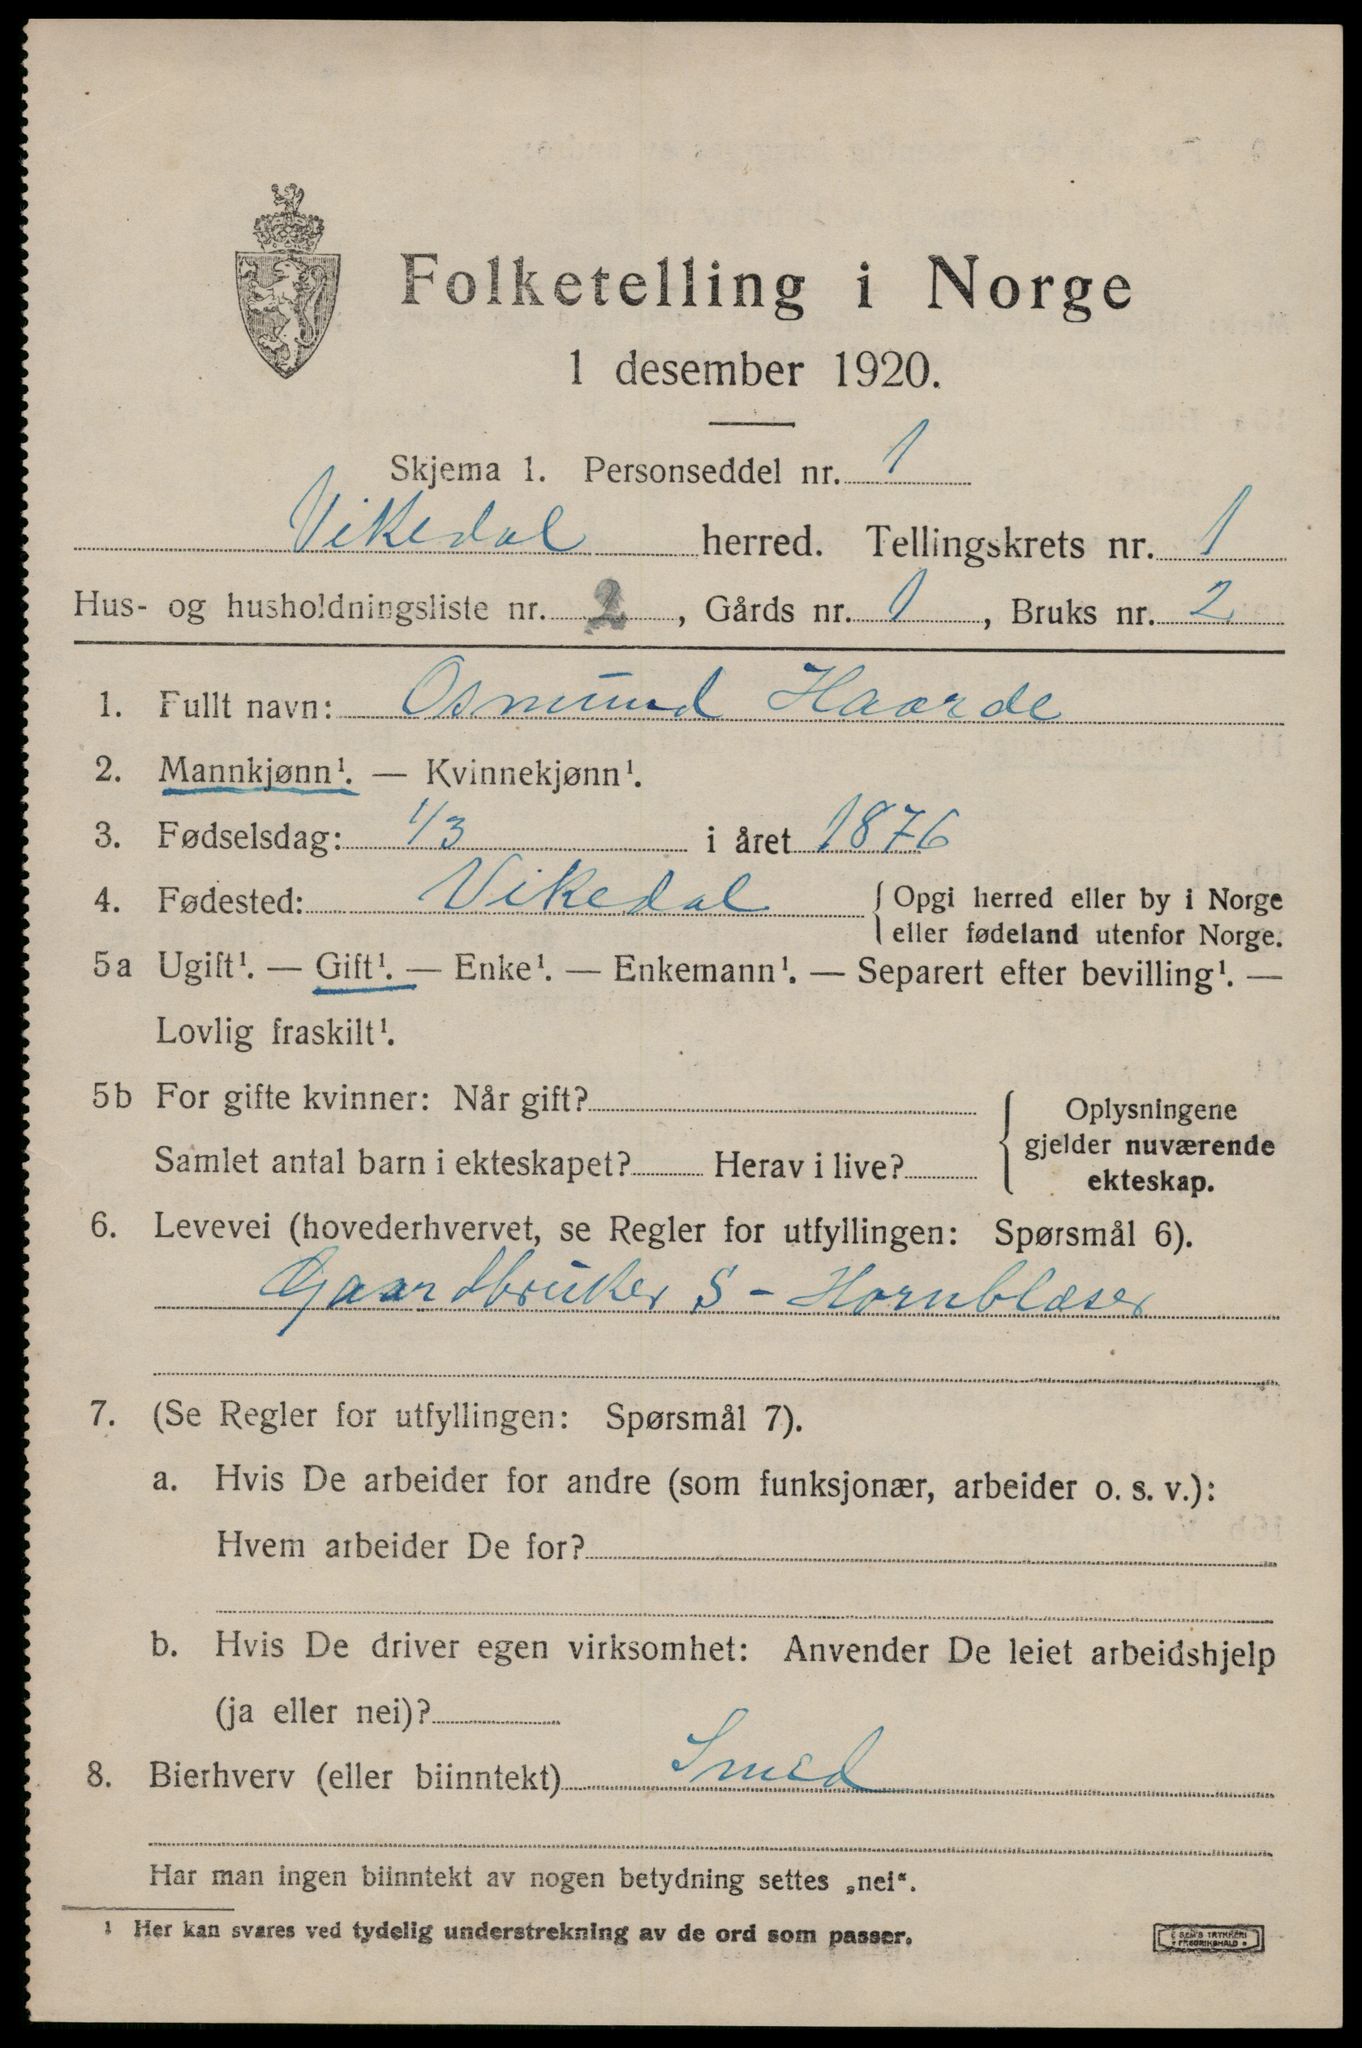 Folketelling i Norge
1 desember 1920.
Skjema 1. Personseddel nr. 1
Vikedal herred. Tellingskrets nr. 1
Hus- og husholdningsliste nr. 2, Gårds nr. 1, Bruks nr. 2
1. Fullt navn: Osmund Haarde
2. Mannkjønn¹. — Kvinnekjønn¹.
3. Fødselsdag: 1/3 i året 1876
4. Fødested: Vikedal { Opgi herred eller by i Norge
eller fødeland utenfor Norge.
5a Ugift¹. — Gift¹. — Enke¹. — Enkemann¹. — Separert efter bevilling¹. —
Lovlig fraskilt¹.
5b For gifte kvinner: Når gift?
Samlet antal barn i ekteskapet? Herav i live?
{ Oplysningene
gjelder nuværende
ekteskap.
6. Levevei (hovederhvervet, se Regler for utfyllingen: Spørsmål 6).
Gaardbruker S - Hornblæser
7. (Se Regler for utfyllingen: Spørsmål 7).
a. Hvis De arbeider for andre (som funksjonær, arbeider o. s. v.):
Hvem arbeider De for?
b. Hvis De driver egen virksomhet: Anvender De leiet arbeidshjelp
(ja eller nei)?
8. Bierhverv (eller biinntekt) Smed
Har man ingen biinntekt av nogen betydning settes „nei“.
¹ Her kan svares ved tydelig understrekning av de ord som passer.
SEM'S TRYKKERI
FREDRIKSHALD